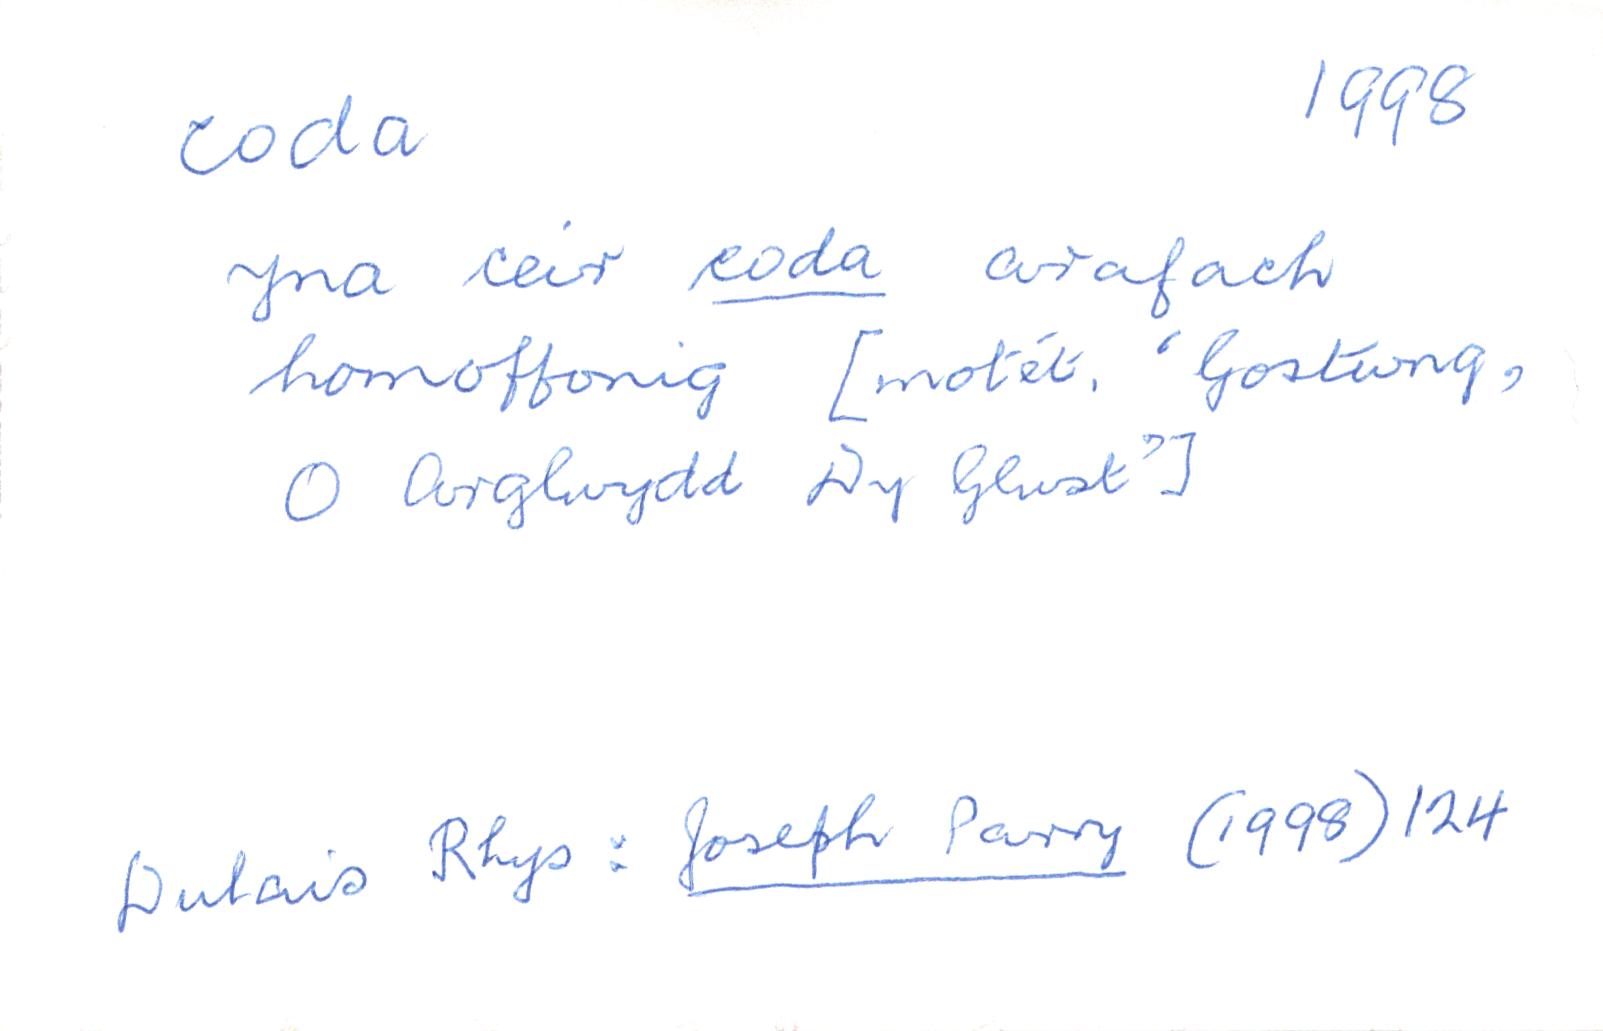 coda 1998
yna ceir coda arafach
homoffonig [motét, 'Gostwng,
O Arglwydd Dy Glust']
Dulais Rhys: Joseph Parry (1998) 124